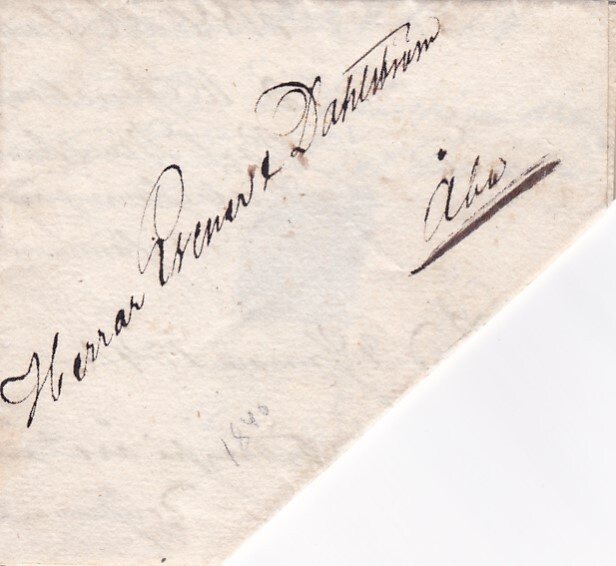 Herrar Evener & Dahlström
Åbo
1840